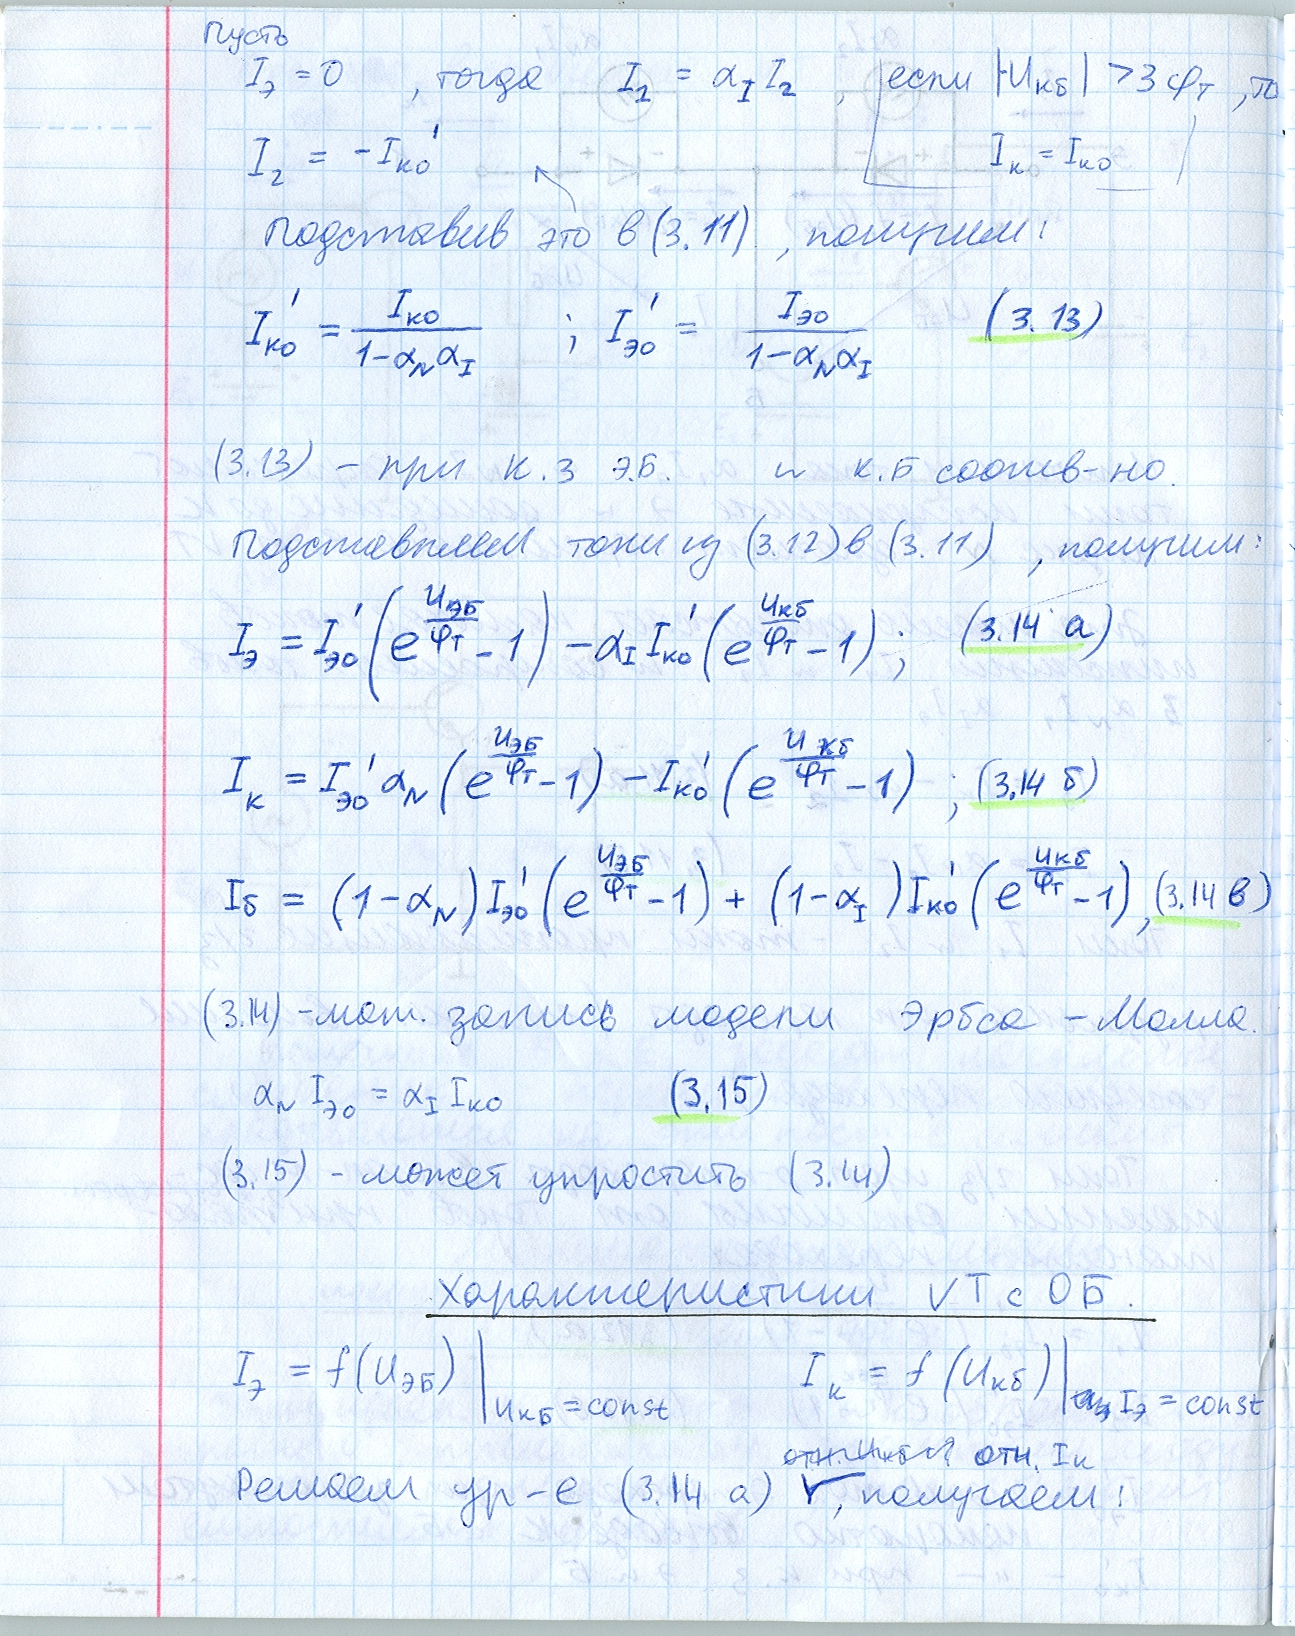 Пусть
I_э = 0 , тогда I_1 = α_I I_2 , если |-U_кб| > 3 φ_т , то
I_2 = -I_ко' I_к = I_ко
Подставив это в (3.11) , получим:
I_ко' = I_ко / (1-α_N α_I) ; I_эо' = I_эо / (1-α_N α_I) (3.13)
(3.13) - при к.з Э.Б. и К.Б соотв-но.
Подставляем токи из (3.12) в (3.11) , получим:
I_э = I_эо' (e^(U_эб/φ_т) - 1) - α_I I_ко' (e^(U_кб/φ_т) - 1) ; (3.14 а)
I_к = I_эо' α_N (e^(U_эб/φ_т) - 1) - I_ко' (e^(U_кб/φ_т) - 1) ; (3.14 б)
I_б = (1-α_N) I_эо' (e^(U_эб/φ_т) - 1) + (1-α_I) I_ко' (e^(U_кб/φ_т) - 1) , (3.14 в)
(3.14) - мат. запись модели Эрбса - Молла.
α_N I_эо = α_I I_ко (3.15)
(3.15) - может упростить (3.14)
Характеристики VT с ОБ.
I_э = f(U_ЭБ) | U_КБ = const I_к = f (U_кб) | I_э = const
отн. I_к
Решаем ур-е (3.14 а) , получаем: